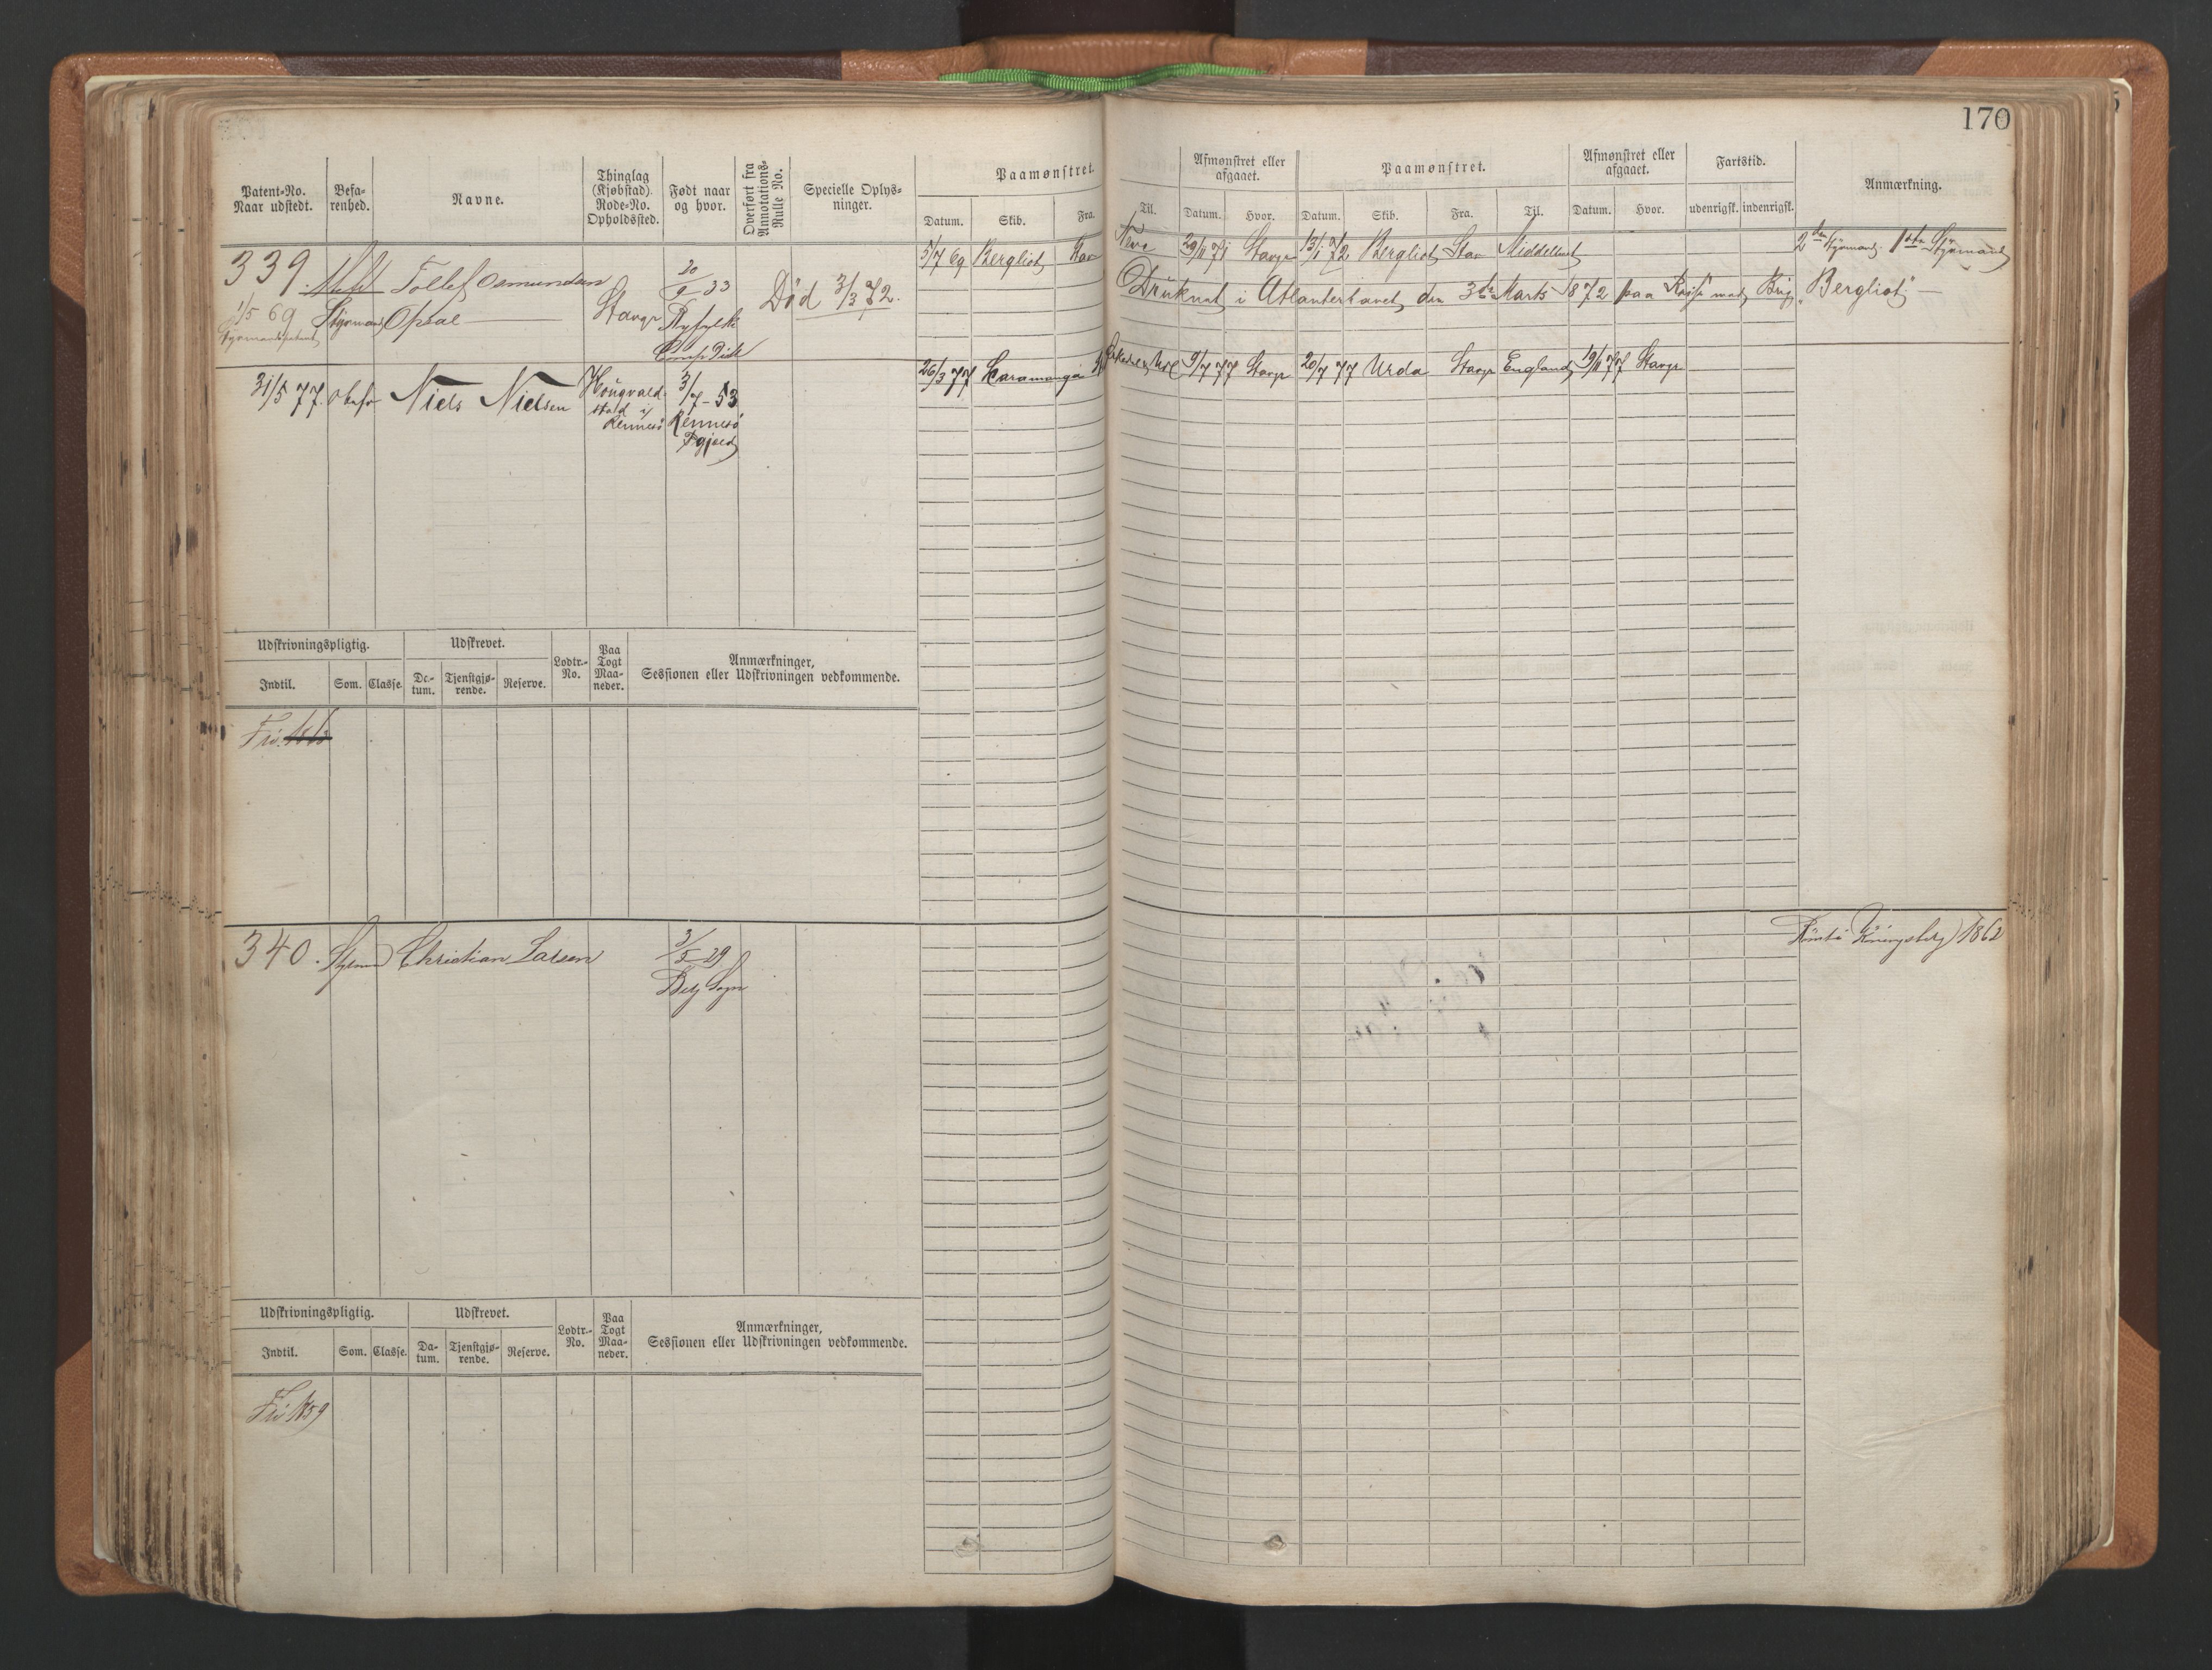 170
Patent-No. Naar udstedt.
Befarenhed.
Navne.
Thinglag (Kjøbstad). Rode-No. Opholdssted.
Født naar og hvor.
Overført fra Annotations-Rulle No.
Specielle Oplysninger.
Paamønstret.
Datum. Skib. Fra. Til.
Afmønstret eller afgaaet.
Datum. Hvor.
Paamønstret.
Datum. Skib. Fra. Til.
Afmønstret eller afgaaet.
Datum. Hvor.
Fartstid.
udenrigsk. indenrigsk.
Anmærkning.
339. Tollef Osmundsen 5/7 69 Bergliot Stav 29/11 71 Stavgr 13/1 72 Bergliot Stav Middelhavet 2den Styrmand. 1ste Styrmand
1/5 69 Styrmand Opsal Stavgr 20/9 33 Ryfylke Død 3/3 72.
Styrmandspatent
Drüknet i Atlanterhavet den 3die Marts 1872 paa Reise med Brig "Bergliot"
31/5 77. Niels Nielsen 3/7-53 26/3 77 9/7 77 Stavgr 20/7 77 Urda Stavgr England 19/11 77 Stavgr
Rennesö Rennesö
Udskrivningspligtig. Udskrevet. Lodtr.-No. Paa Togt Maaneder. Anmærkninger, Sessionen eller Udskrivningen vedkommende.
Indtil. Som. Classe. Datum. Tjenstgjørende. Reserve.
Fri
340. Christian Larsen 3/5-29 1862
Sogn
Udskrivningspligtig. Udskrevet. Lodtr.-No. Paa Togt Maaneder. Anmærkninger, Sessionen eller Udskrivningen vedkommende.
Indtil. Som. Classe. Datum. Tjenstgjørende. Reserve.
Fri 1859